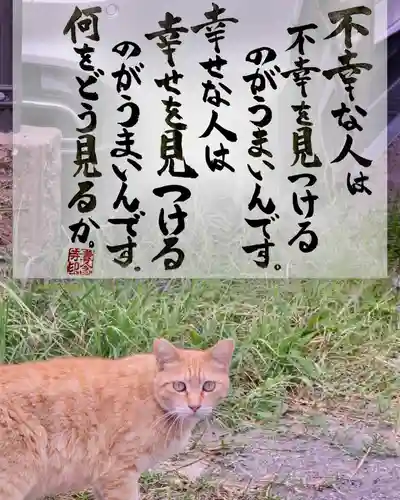 不幸な人は
不幸を見つける
のがうまいんです。
幸せな人は
幸せを見つける
のがうまいんです。
何をどう見るか。